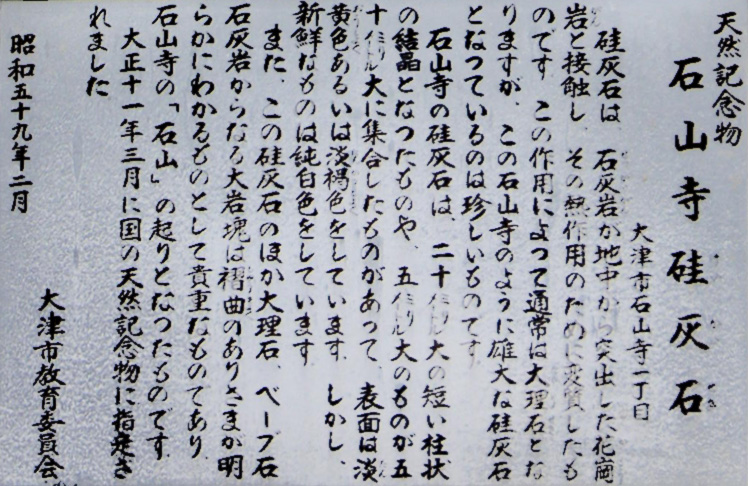 天然記念物
石山寺硅灰石
大津市石山寺一丁目
硅灰石は、石灰岩が地中から突出した花崗
岩と接触し、その熱作用のために変質したも
のです。この作用によって通常は大理石とな
りますが、この石山寺のように雄大な硅灰石
となっているのは珍しいものです。
石山寺の硅灰石は、二十ミリメートル大の短い柱状
の結晶となったものや、五ミリメートル大のものが五
十ミリメートル大に集合したものがあって、表面は淡
黄色あるいは淡褐色をしています。しかし、
新鮮なものは純白色をしています。
また、この硅灰石のほか大理石、ベーブ石
石灰岩からなる大岩塊は褶曲のありさまが明
らかにわかるものとして貴重なものであり、
石山寺の「石山」の起りとなったものです。
大正十一年三月に国の天然記念物に指定さ
れました
昭和五十九年二月
大津市教育委員会